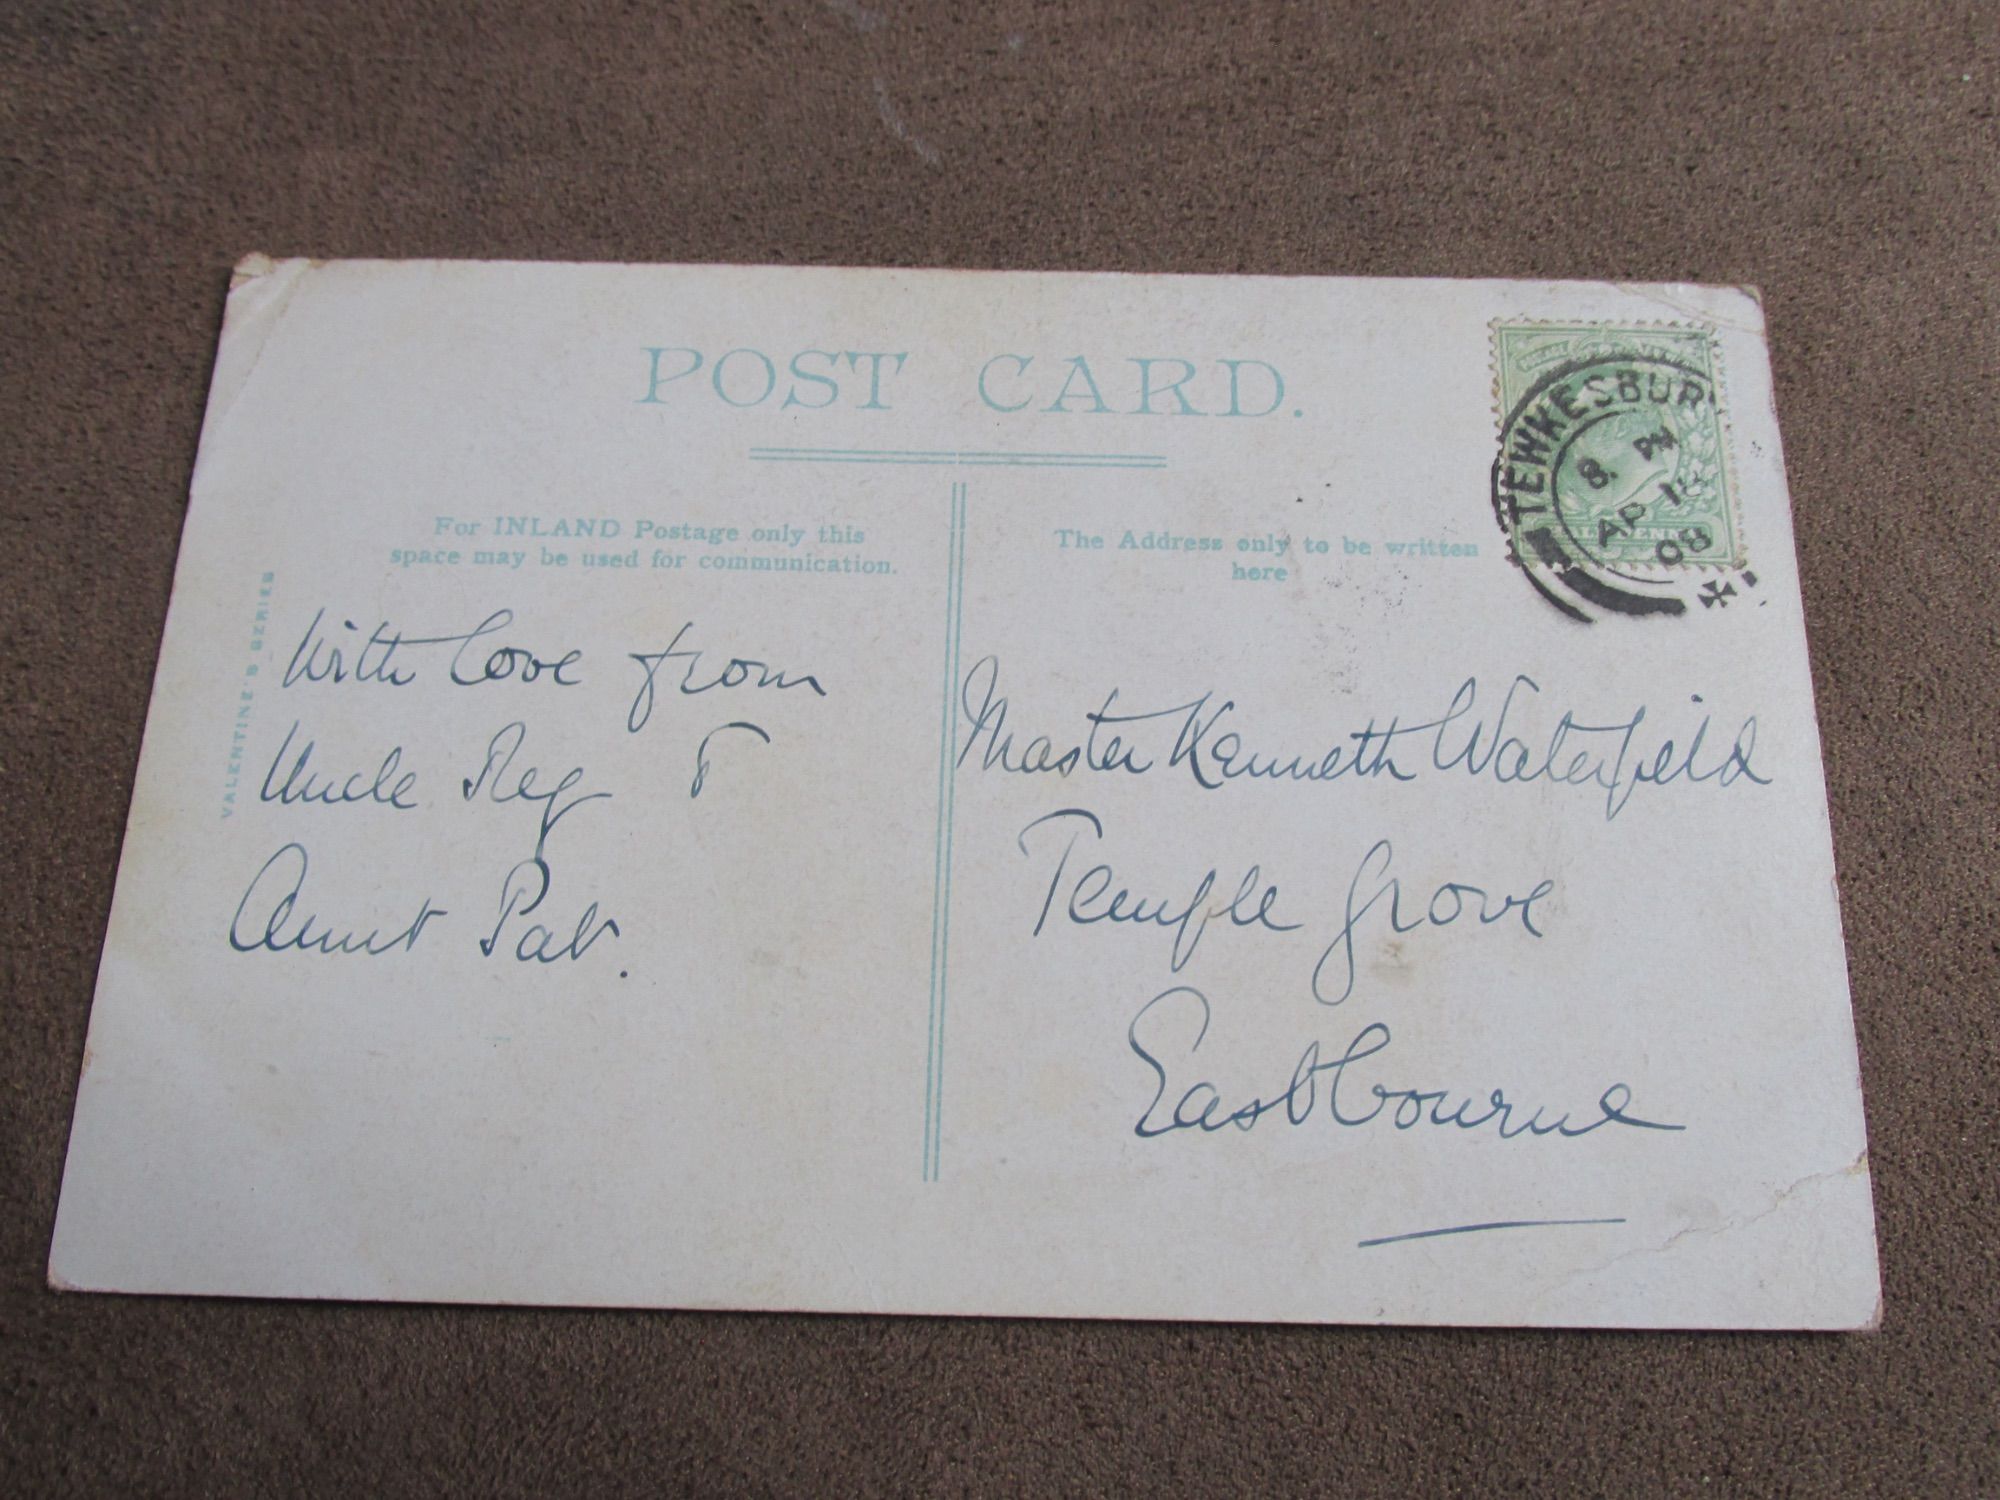 POST CARD.
For INLAND Postage only this
space may be used for communication.
The Address only to be written
here
VALENTINE'S SERIES
With love from
Uncle Reg &
Aunt Pat.
Master Kenneth Waterfield
Temple Grove
Eastbourne
TEWKESBUR
8. PM
AP
08